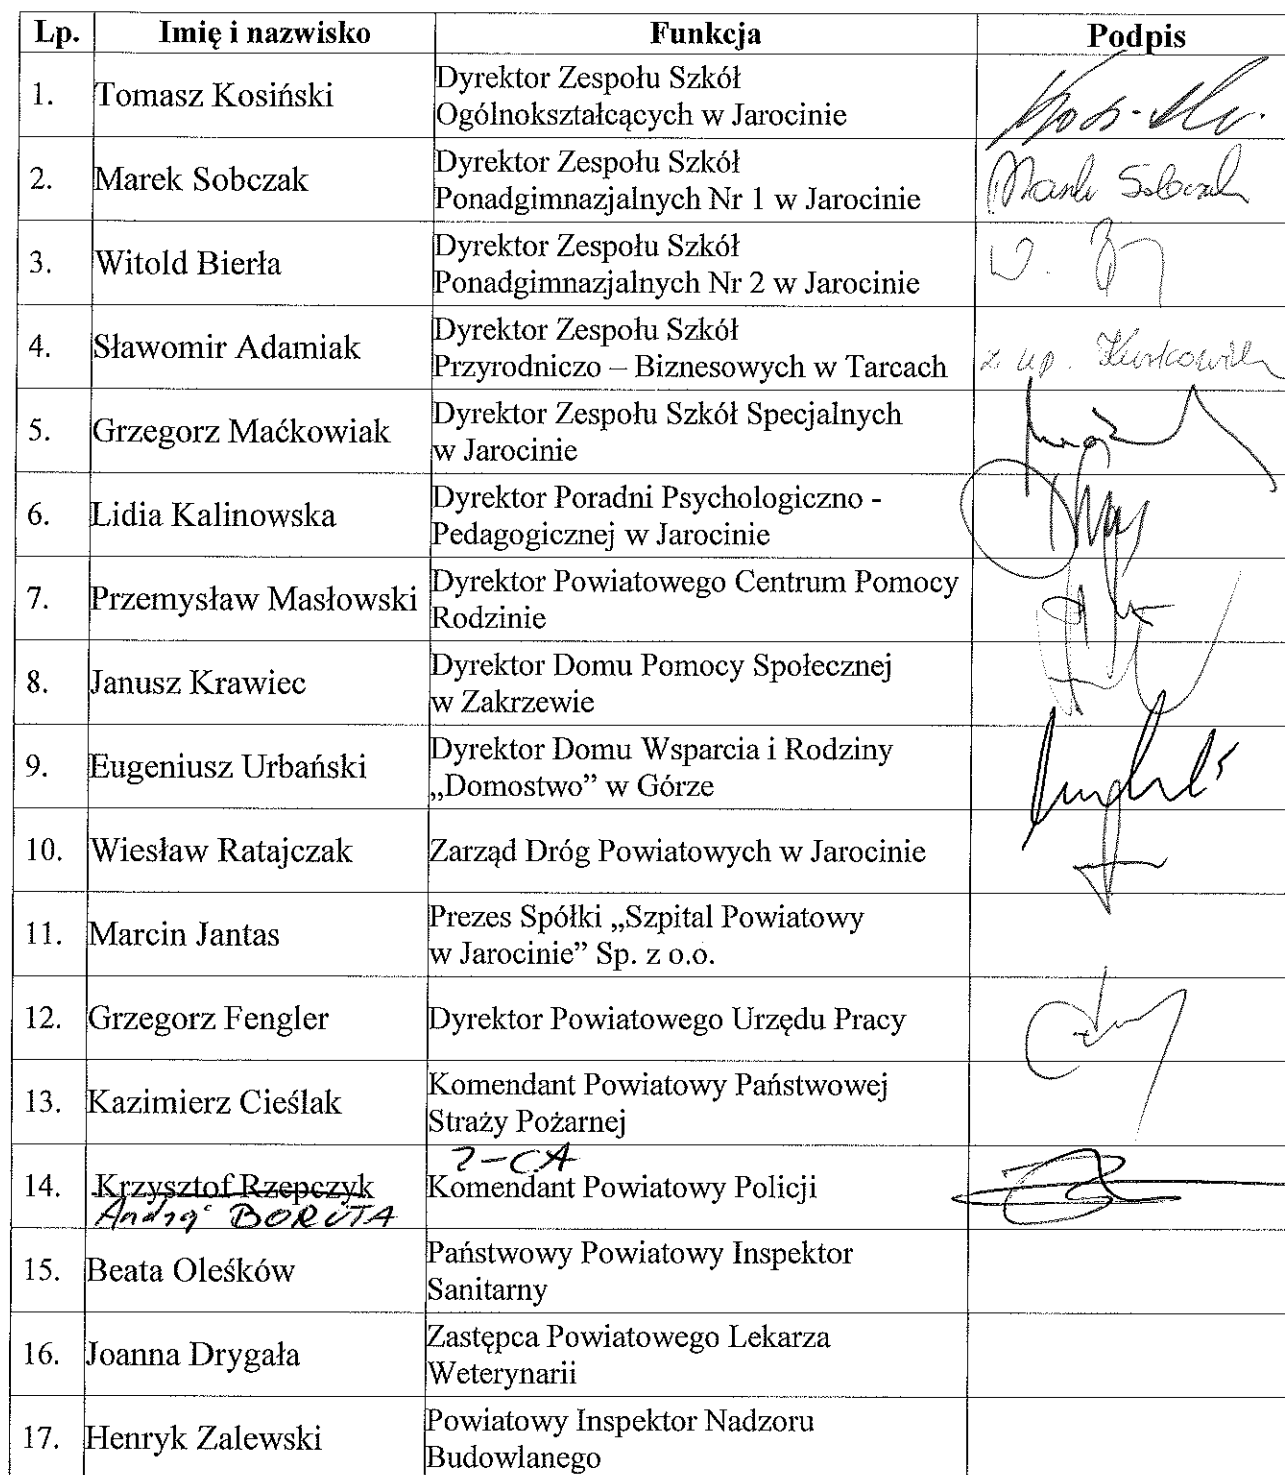 Lp. Imię i nazwisko Funkcja Podpis
1. Tomasz Kosiński Dyrektor Zespołu Szkół
Ogólnokształcących w Jarocinie
2. Marek Sobczak Dyrektor Zespołu Szkół
Ponadgimnazjalnych Nr 1 w Jarocinie Marek Sobczak
3. Witold Bierła Dyrektor Zespołu Szkół
Ponadgimnazjalnych Nr 2 w Jarocinie
4. Sławomir Adamiak Dyrektor Zespołu Szkół
Przyrodniczo – Biznesowych w Tarcach z up.
5. Grzegorz Maćkowiak Dyrektor Zespołu Szkół Specjalnych
w Jarocinie
6. Lidia Kalinowska Dyrektor Poradni Psychologiczno -
Pedagogicznej w Jarocinie
7. Przemysław Masłowski Dyrektor Powiatowego Centrum Pomocy
Rodzinie
8. Janusz Krawiec Dyrektor Domu Pomocy Społecznej
w Zakrzewie
9. Eugeniusz Urbański Dyrektor Domu Wsparcia i Rodziny
„Domostwo” w Górze
10. Wiesław Ratajczak Zarząd Dróg Powiatowych w Jarocinie
11. Marcin Jantas Prezes Spółki „Szpital Powiatowy
w Jarocinie” Sp. z o.o.
12. Grzegorz Fengler Dyrektor Powiatowego Urzędu Pracy
13. Kazimierz Cieślak Komendant Powiatowy Państwowej
Straży Pożarnej
14. Krzysztof Rzepczyk Komendant Powiatowy Policji
BORUTA
15. Beata Oleśków Państwowy Powiatowy Inspektor
Sanitarny
16. Joanna Drygała Zastępca Powiatowego Lekarza
Weterynarii
17. Henryk Zalewski Powiatowy Inspektor Nadzoru
Budowlanego